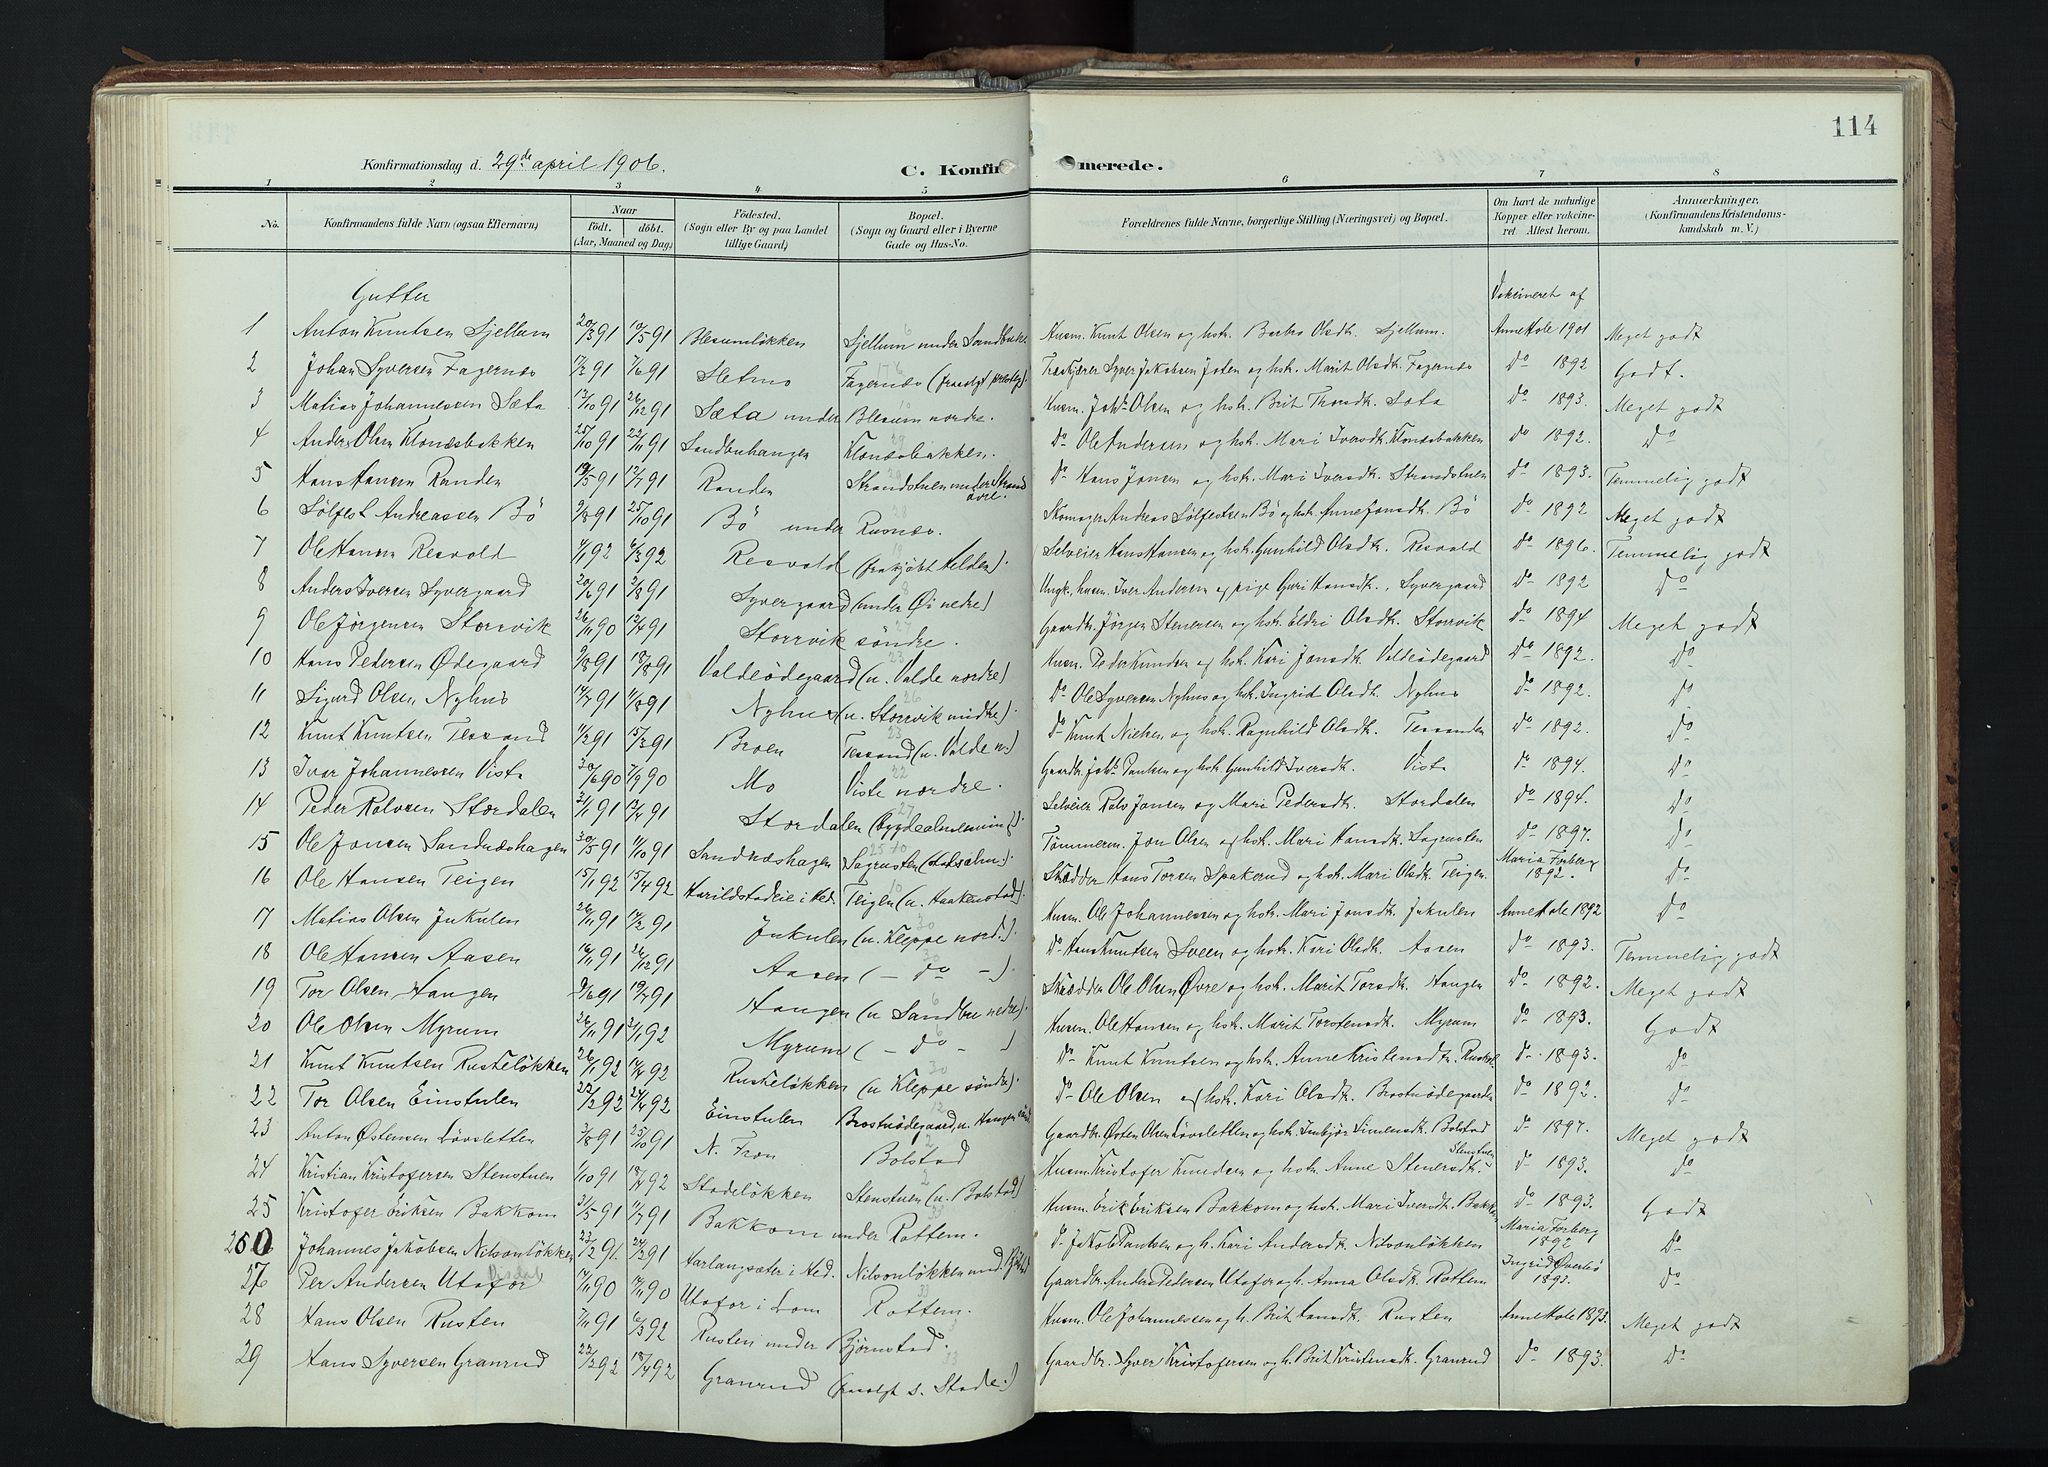 114
Konfirmationsdag d. 29de april 1906.
C. Konfirmerede.
1 2 3 4 5 6 7 8
No. Konfirmandens fulde Navn (ogsaa Efternavn) Naar født. døbt. (Aar, Maaned og Dag) Fødested. (Sogn eller By og paa Landet tillige Gaard) Bopæl. (Sogn og Gaard eller i Byerne Gade og Hus-No. Forældrenes fulde Navne, borgerlige Stilling (Næringsvei) og Bopæl. Om havt de naturlige Kopper eller vakcineret. Attest herom. Anmærkninger. (Konfirmandens Kristendomskundskab m. V.)
Gutter Vakcineret af
1 Anton Knutsen Sjellum 20/3 91 10/5 91 Blessumløkken Sjellum under Sandbakke Husm. Knut Olsen og hstr. Barbro Olsdtr. Sjellum. Anne Hole 1901 Meget godt
2 Johan Syversen Fagernæs 7/2 91 7/6 91 Sletmo Fagernæs Træskjærer Syver Jakobsen Josten og hstr. Marit Olsdtr. Fagernæs do 1892 Godt.
3 Matias Johannessen Sæta 13/10 91 26/12 91 Sæta under Blessum nordre. Husm. Johs. Olsen og hstr. Brit Thorsdtr. Sæta do 1893. Meget godt
4 Anders Olsen Klonæsbakken 25/10 91 22/11 91 Sandbuhaugen Klonæsbakken. do Ole Andersen og hstr. Mari Iversdtr. Klonæsbakken do 1892. do
5 Hans Hansen Randen 19/5 91 12/7 91 Randen Strandstuen under Strand øvre. do Hans Jonsen og hstr. Mari Iversdtr. Strandstuen do 1893. Temmelig godt
6 Sølfest Andreassen Bö 9/8 91 25/10 91 Bö under Rusnæs. Skomager Andreas Sølfestsen Bö og hstr. Anne Jonsdtr. Bö do 1892 Meget godt
7 Ole Hansen Resvold 4/1 92 6/3 92 Resvold (frakjøbt Kilden). Selveier Hans Hansen og hstr. Gunhild Olsdtr. Resvold do 1896. Temmelig godt
8 Anders Iversen Syvergaard 20/6 91 2/8 91 Syvergaard (under Öi nedre) Ungk. husm. Iver Andersen og pige Guri Hansdtr., Syvergaard do 1892 do
9 Ole Jørgensen Storvik 26/11 90 12/4 91 Storrvik søndre. Gaardbr. Jørgen Stenersen og hstr. Eldri Olsdtr. Storrvik do 1894 Meget godt
10 Hans Pedersen Ødegaard 9/8 91 18/8 91 Valdeødegaard (u. Valde nordre) Husm. Peder Knudsen og hstr. Kari Jonsdtr. Valdeødegaard do 1892. do
11 Sigurd Olsen Nyhus 14/7 91 4/8 91 Nyhus (u. Storrvik midtre). do Ole Syversen Nyhus og hstr. Ingrid Olsdtr. Nyhus do 1892. do
12 Knut Knutsen Tessand 4/2 91 15/3 91 Broen Tessand (u. Valde n.) do Knut Nielsen og hstr. Ragnhild Olsdtr. Tessanden do 1892. do
13 Ivar Johannessen Viste 30/6 90 7/9 90 Mo Viste nordre. Gaardbr. Johs. Paulsen og hstr. Gunhild Iversdtr. Viste do 1894. do
14 Peder Rolvsen Stordalen 31/1 91 12/4 91 Stordalen (bygdealmenning). Selveier Rolv Jonsen og Mari Pedersdtr. Stordalen do 1894. do
15 Ole Jonsen Sandnæshagen 30/5 91 4/10 91 Sandnæshagen Sagrusten Tømmerm. Jon Olsen og hstr. Mari Hansdtr. Sagrusten do 1897. do
16 Ole Hansen Teigen 15/1 92 15/4 92 Harildstadeie i Hed. Teigen (u. Haakenstad). Skrædder Hans Torsen Spakerud og hstr. Mari Olsdtr. Teigen Maria Forberg 1892. do
17 Matias Olsen Jukulen 26/11 91 12/2 91 Jukulen (u. Kleppe nord.). Husm. Ole Johannessen og hstr. Mari Jonsdtr. Jukulen Anne Hole 1892 do
18 Ole Hansen Aasen 16/11 91 26/12 91 Aasen (– do –). do Hans Knutsen Sveen og hstr. Kari Olsdtr. Aasen do 1893. Temmelig godt
19 Tor Olsen Haugen 9/6 91 19/7 91 Haugen (u Sandbre nedre). Skrædder Ole Olsen Øvre og hstr. Marit Torsdtr. Haugen do 1892. Meget godt
20 Ole Olsen Myrum 26/11 91 24/1 92 Myrum (– do –) Husm. Ole Hansen og hstr. Marit Torstensdtr. Myrum do 1893. Godt
21 Knut Knutsen Ruskeløkken 26/1 92 14/4 92 Ruskeløkken (u Kleppe søndre). do Knut Knutsen og hstr. Anne Kristensdtr. do 1893. do
22 Tor Olsen Einstulen 22/2 92 24/4 92 Einstulen Brostuødegaard u. Haugen do Ole Olsen og hstr. Kari Olsdtr. Brostuødegaarden do 1892. do
23 Anton Østensen Løvsletten 3/8 91 25/10 91 N. Fron Bolstad Gaardbr. Østen Olsen Løvsletten og hstr. Imbjør Simensdtr. Bolstad do 1897. Meget godt
24 Kristian Kristofersen Stenstuen 1/10 91 18/4 92 Stadeløkken Stenstuen (u. Bolstad) Husm. Kristofer Knudsen og hstr. Anne Stenersdtr. Stenstuen do 1893. do
25 Kristofer Eriksen Bakkom 31/5 91 4/7 91 Bakkom under Rottem. Husm. Erik Eriksen Bakkom og hstr. Mari Iversdtr. Bakkom do 1893. Godt
26 Johannes Jakobsen Nilsonløkken 23/2 91. 24/3 91 Harlangsæter i Hed. Nilsonløkken und. Bjölstad do Jakob Paulsen og h. Kari Andersdtr. Nilsonløkken Maria Forberg 1892 do
27 Per Andersen Utafor 17/11 90 19/11 90 Utafor i Lom Rottem. Gaardbr. Anders Pedersen Utafor og h. Anna Olsdtr. Rottem Ingrid Øverbø 1893. do
28 Hans Olsen Rusten 7/11 91 6/3 92 Rusten under Bjørnstad. Husm. Ole Johannessen og h. Brit Hansdtr. Rusten Anne Hole 1893. Meget godt
29 Hans Syversen Granrud 22/2 92 18/4 92 Granrud (frasolgt s. Stade.) Gaardbr. Syver Kristofersen og h. Brit Kristensdtr. Granrud do 1893. do